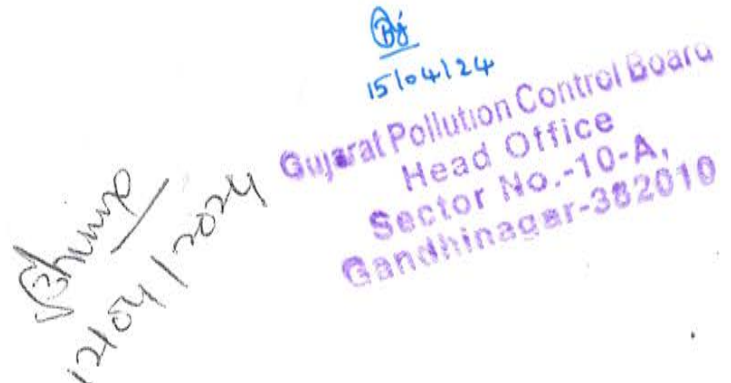 15/04/24
Gujarat Pollution Control Board
Head Office
Sector No.-10-A,
Gandhinagar-382010
12/04/2024